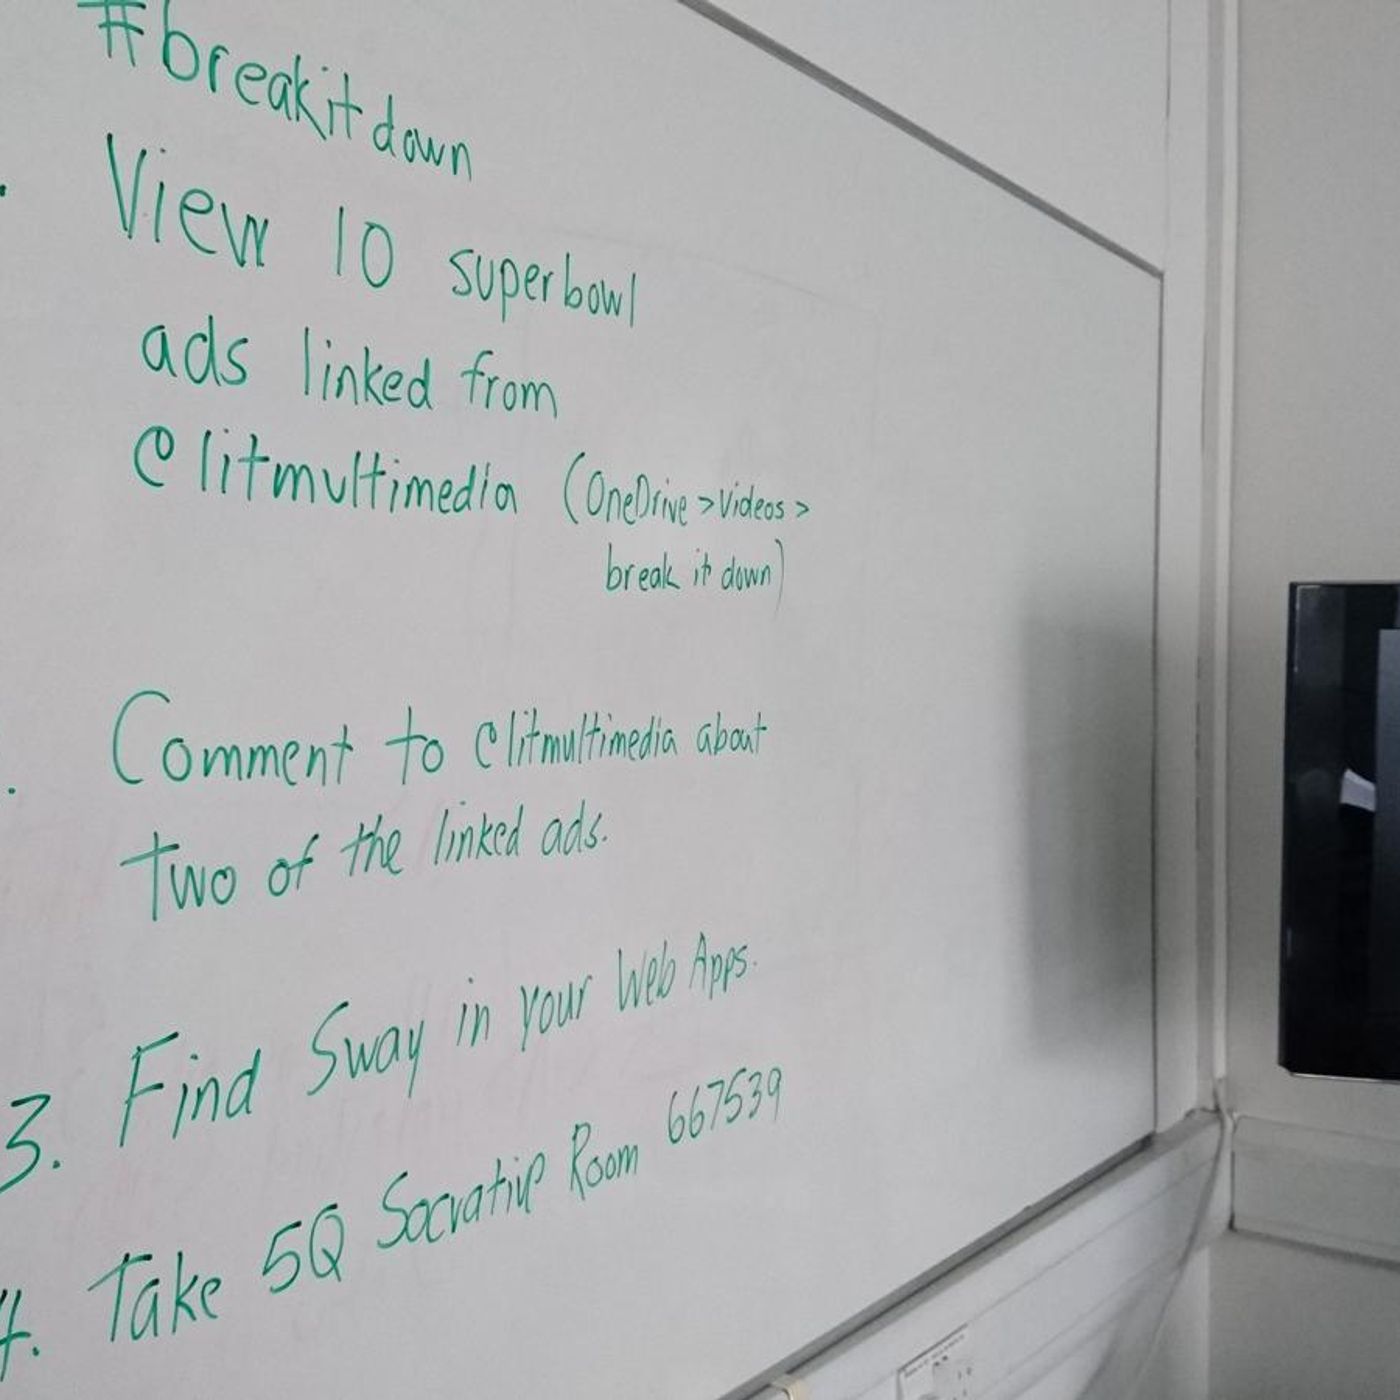 #breakitdown
. View 10 superbowl
ads linked from
@litmultimedia (OneDrive > Videos >
break it down)
. Comment to @litmultimedia about
two of the linked ads.
3. Find Sway in your Web Apps.
4. Take 5Q Socrative Room 667539